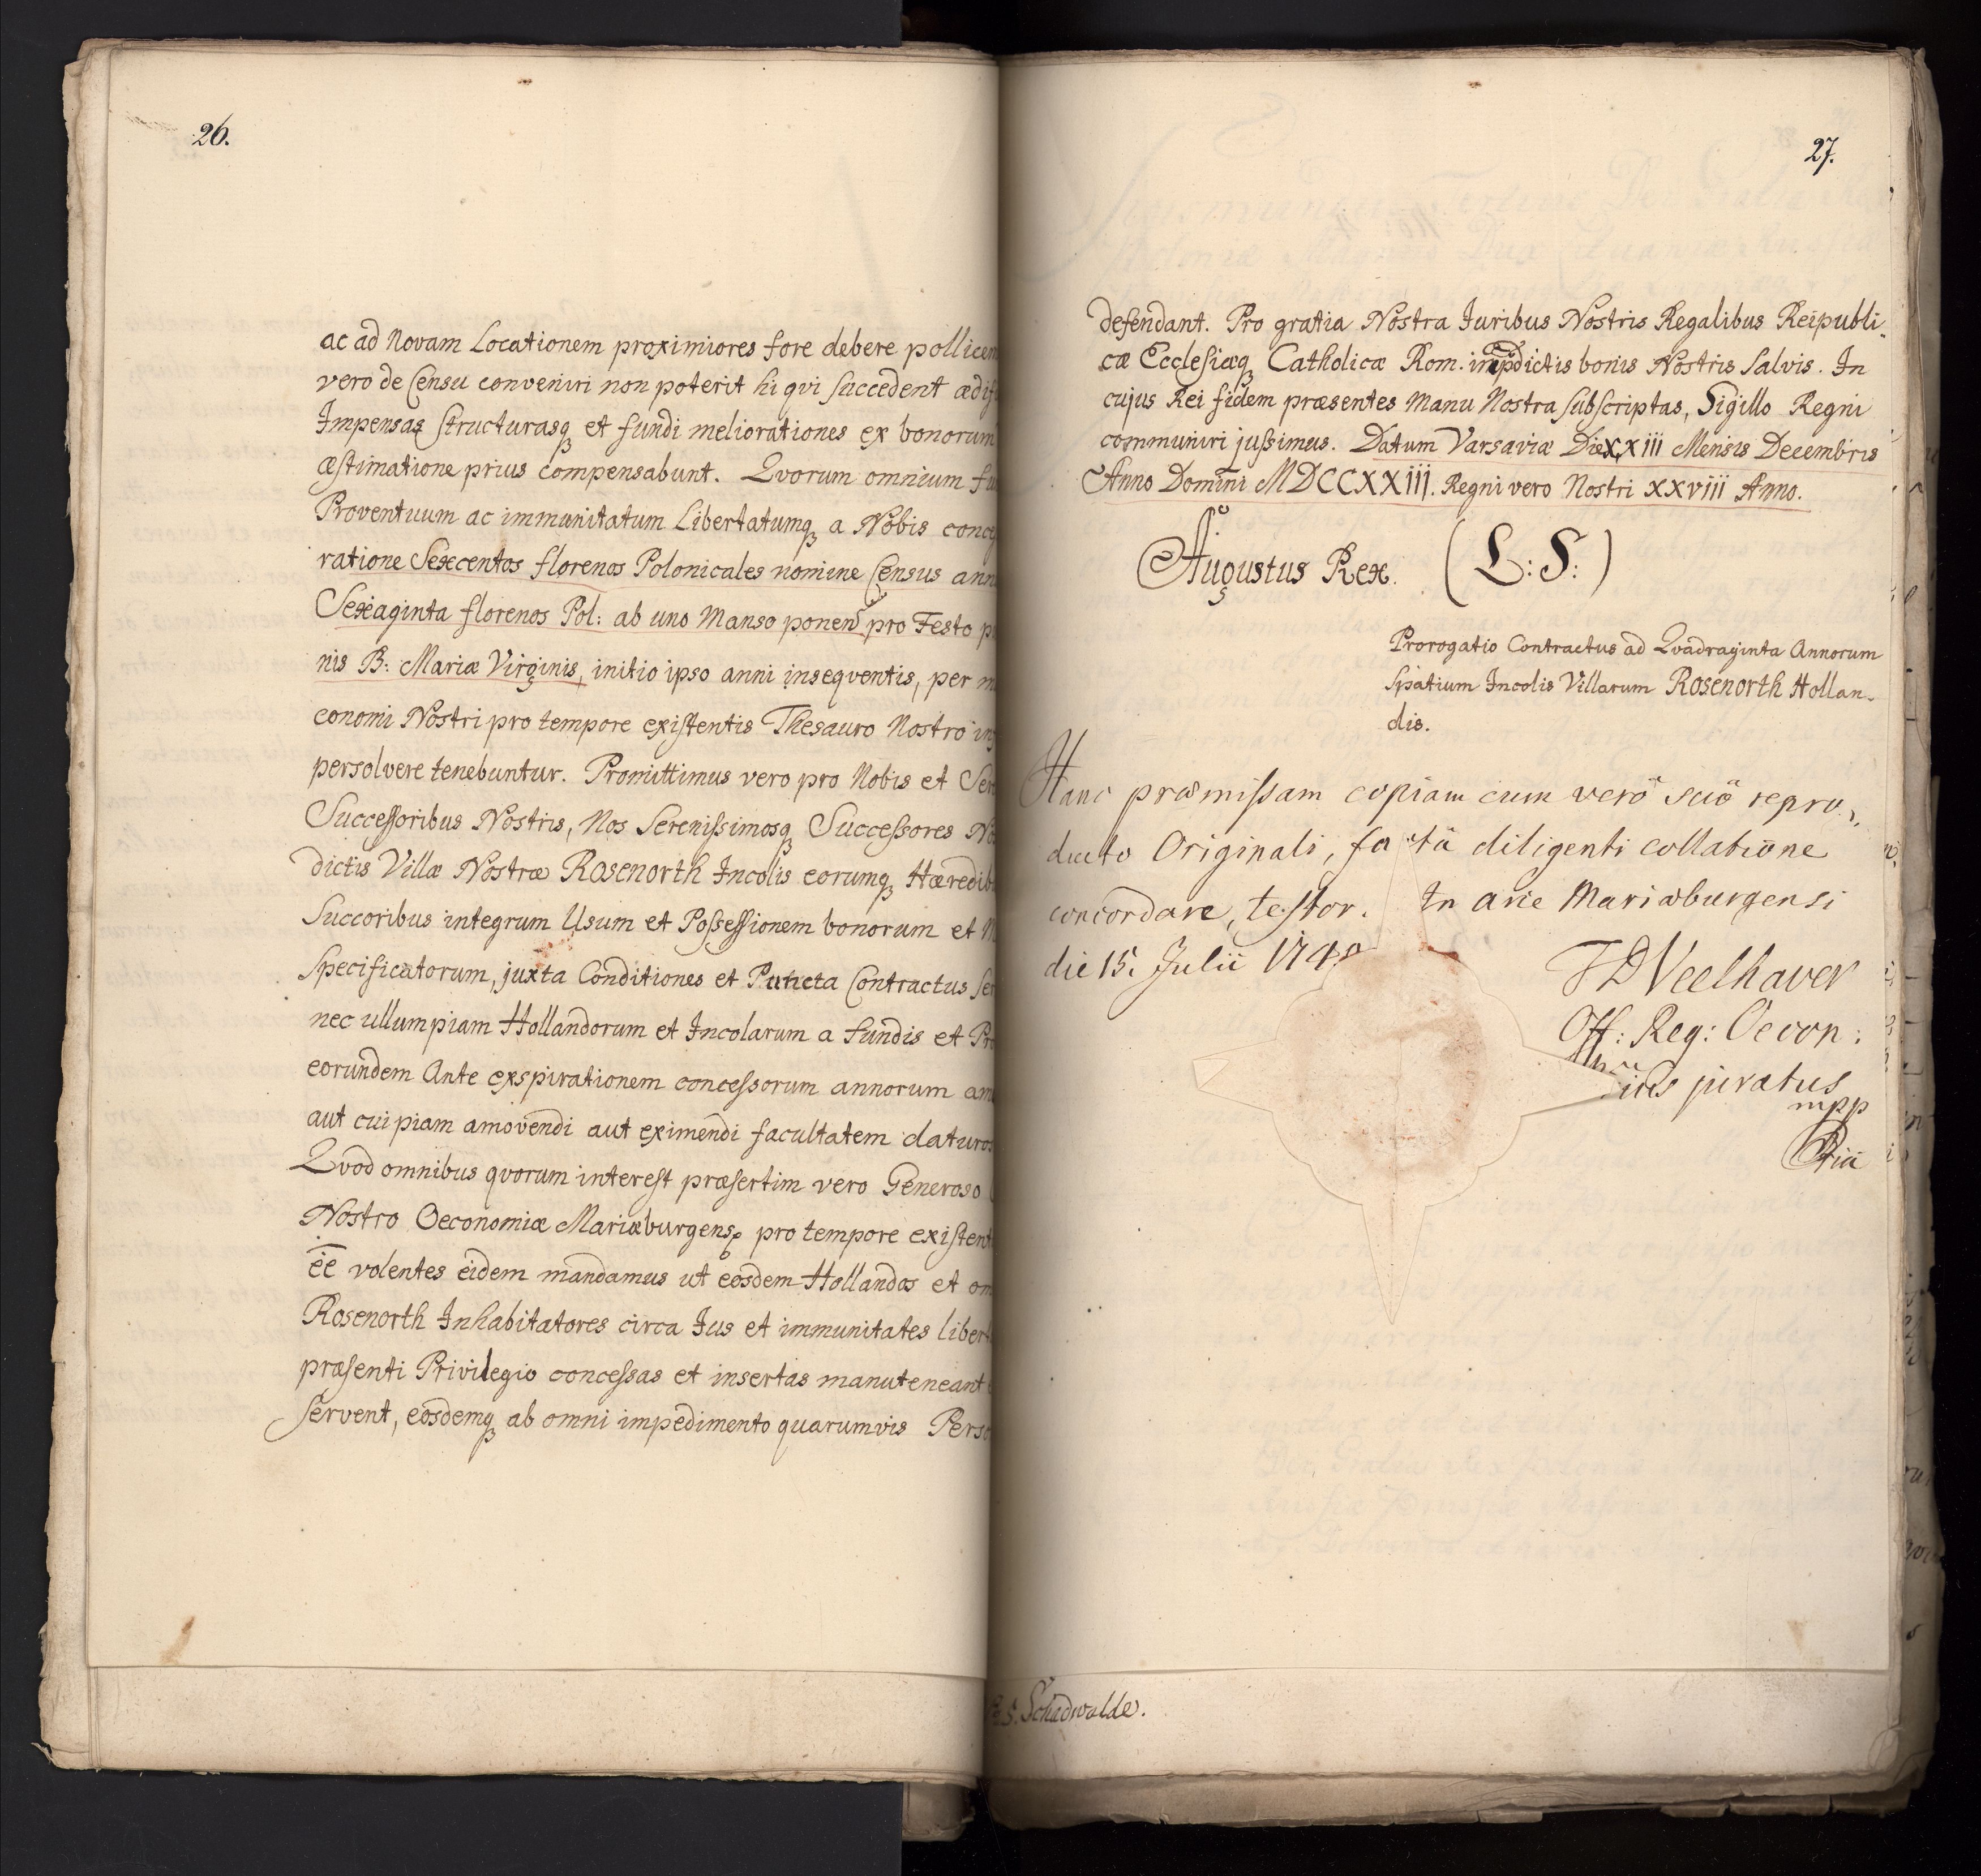 26.
ac ad Novam Locationem proximiores fore debere pollicem
vero de Censu conveniri non poterit hi qvi Succedent ædif
Impensas Structurasq et fundi meliorationes ex bonorum
æstimatione prius compensabunt. Qvorum omnium fu
Proventuum ac immunitatum Libertatumq a Nobis conce
ratione Sexcentos florenos Polonicales nomine Census ann
Sexaginta florenos Pol: ab uno Manso ponen pro Festo p
nis B: Mariæ Virginis, initio ipso anni inseqventis, per m
conomi Nostri pro tempore existentis Thesauro Nostro in
persolvere tenebuntur. Promittimus vero pro Nobis et Ser
Successoribus Nostris, Nos Serenissimosq Successores No
dictis Villæ Nostræ Rosenorth Incolis eorumq Hæredib
Succoribus integrum Usum et Possessionem bonorum et M
Specificatorum, juxta Conditiones et Puncta Contractus Ser
nec ullumpiam Hollandorum et Incolarum a fundis et Pr
eorundem Ante exspirationem concessorum annorum am
aut cuipiam amovendi aut eximendi facultatem daturos
Qvod omnibus qvorum interest præsertim vero Generoso
Nostro Oeconomiæ Mariæburgens pro tempore existent
ēē volentes eidem mandamus ut eosdem Hollandos et om
Rosenorth Inhabitatores circa Jus et immunitates libert
præsenti Privilegio concessas et insertas manuteneant
servent, eosdemq ab omni impedimento quarumvis Perso
27.
defendant. Pro gratia Nostra Juribus Nostris Regalibus Reipubli-
cæ Ecclesiæq Catholicæ Rom. in pdictis bonis Nostris Salvis. In
cujus Rei fidem præsentes Manu Nostra Subscriptas, Sigillo Regni
communiri jussimus. Datum Varsaviæ Die XXIII Mensis Decembris
Anno Domini MDCCXXIII. Regni vero Nostri XXVIII Anno.
Augustus Rex. (L:S:)
Prorogatio Contractus ad Qvadraginta Annorum
Spatium Incolis Villarum Rosenorth Hollan-
dis.
Hanc præmissam copiam cum verô suô repro-
ducto Originali, factâ diligenti collatione
concordare, testor. In arce Mariæburgensi
die 15. Julii
JDVeelhaver
Off: Reg: Oecon:
juratus
mpp
S. Schadwalde.